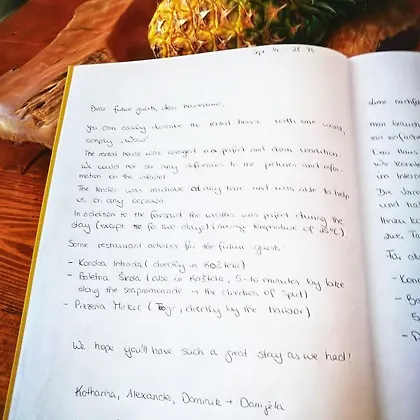 Dear future guests, dear houseowner,
you can easily describe the rental house with one word,
simply „Wow"
The rental house was arranged in a perfect and clean condition
We could not see any differences to the pictures and infor-
mation on the internet
The landlor was reachable at any time and was able to help
us on any occasion
In addition to the forward the weather was perfect during the
stay (except for two days) (average temperature of 25°C)
Some restaurant advices for the future guests:
- Konoba Intrada (directly in Kaštela)
- Baletna Škola (also in Kaštela, 5-10 minutes by bike
along the seapromenade in the direction of Split)
- Pizzeria (directly by the harbour)
We hope you'll have such a great stay as we had!
Katharina, Alexander, Dominik + Danijela
diese nachfol
man brauch
ein einfache
Das Haus
Wir konn
im Intern
und hat
Für al
- Kono